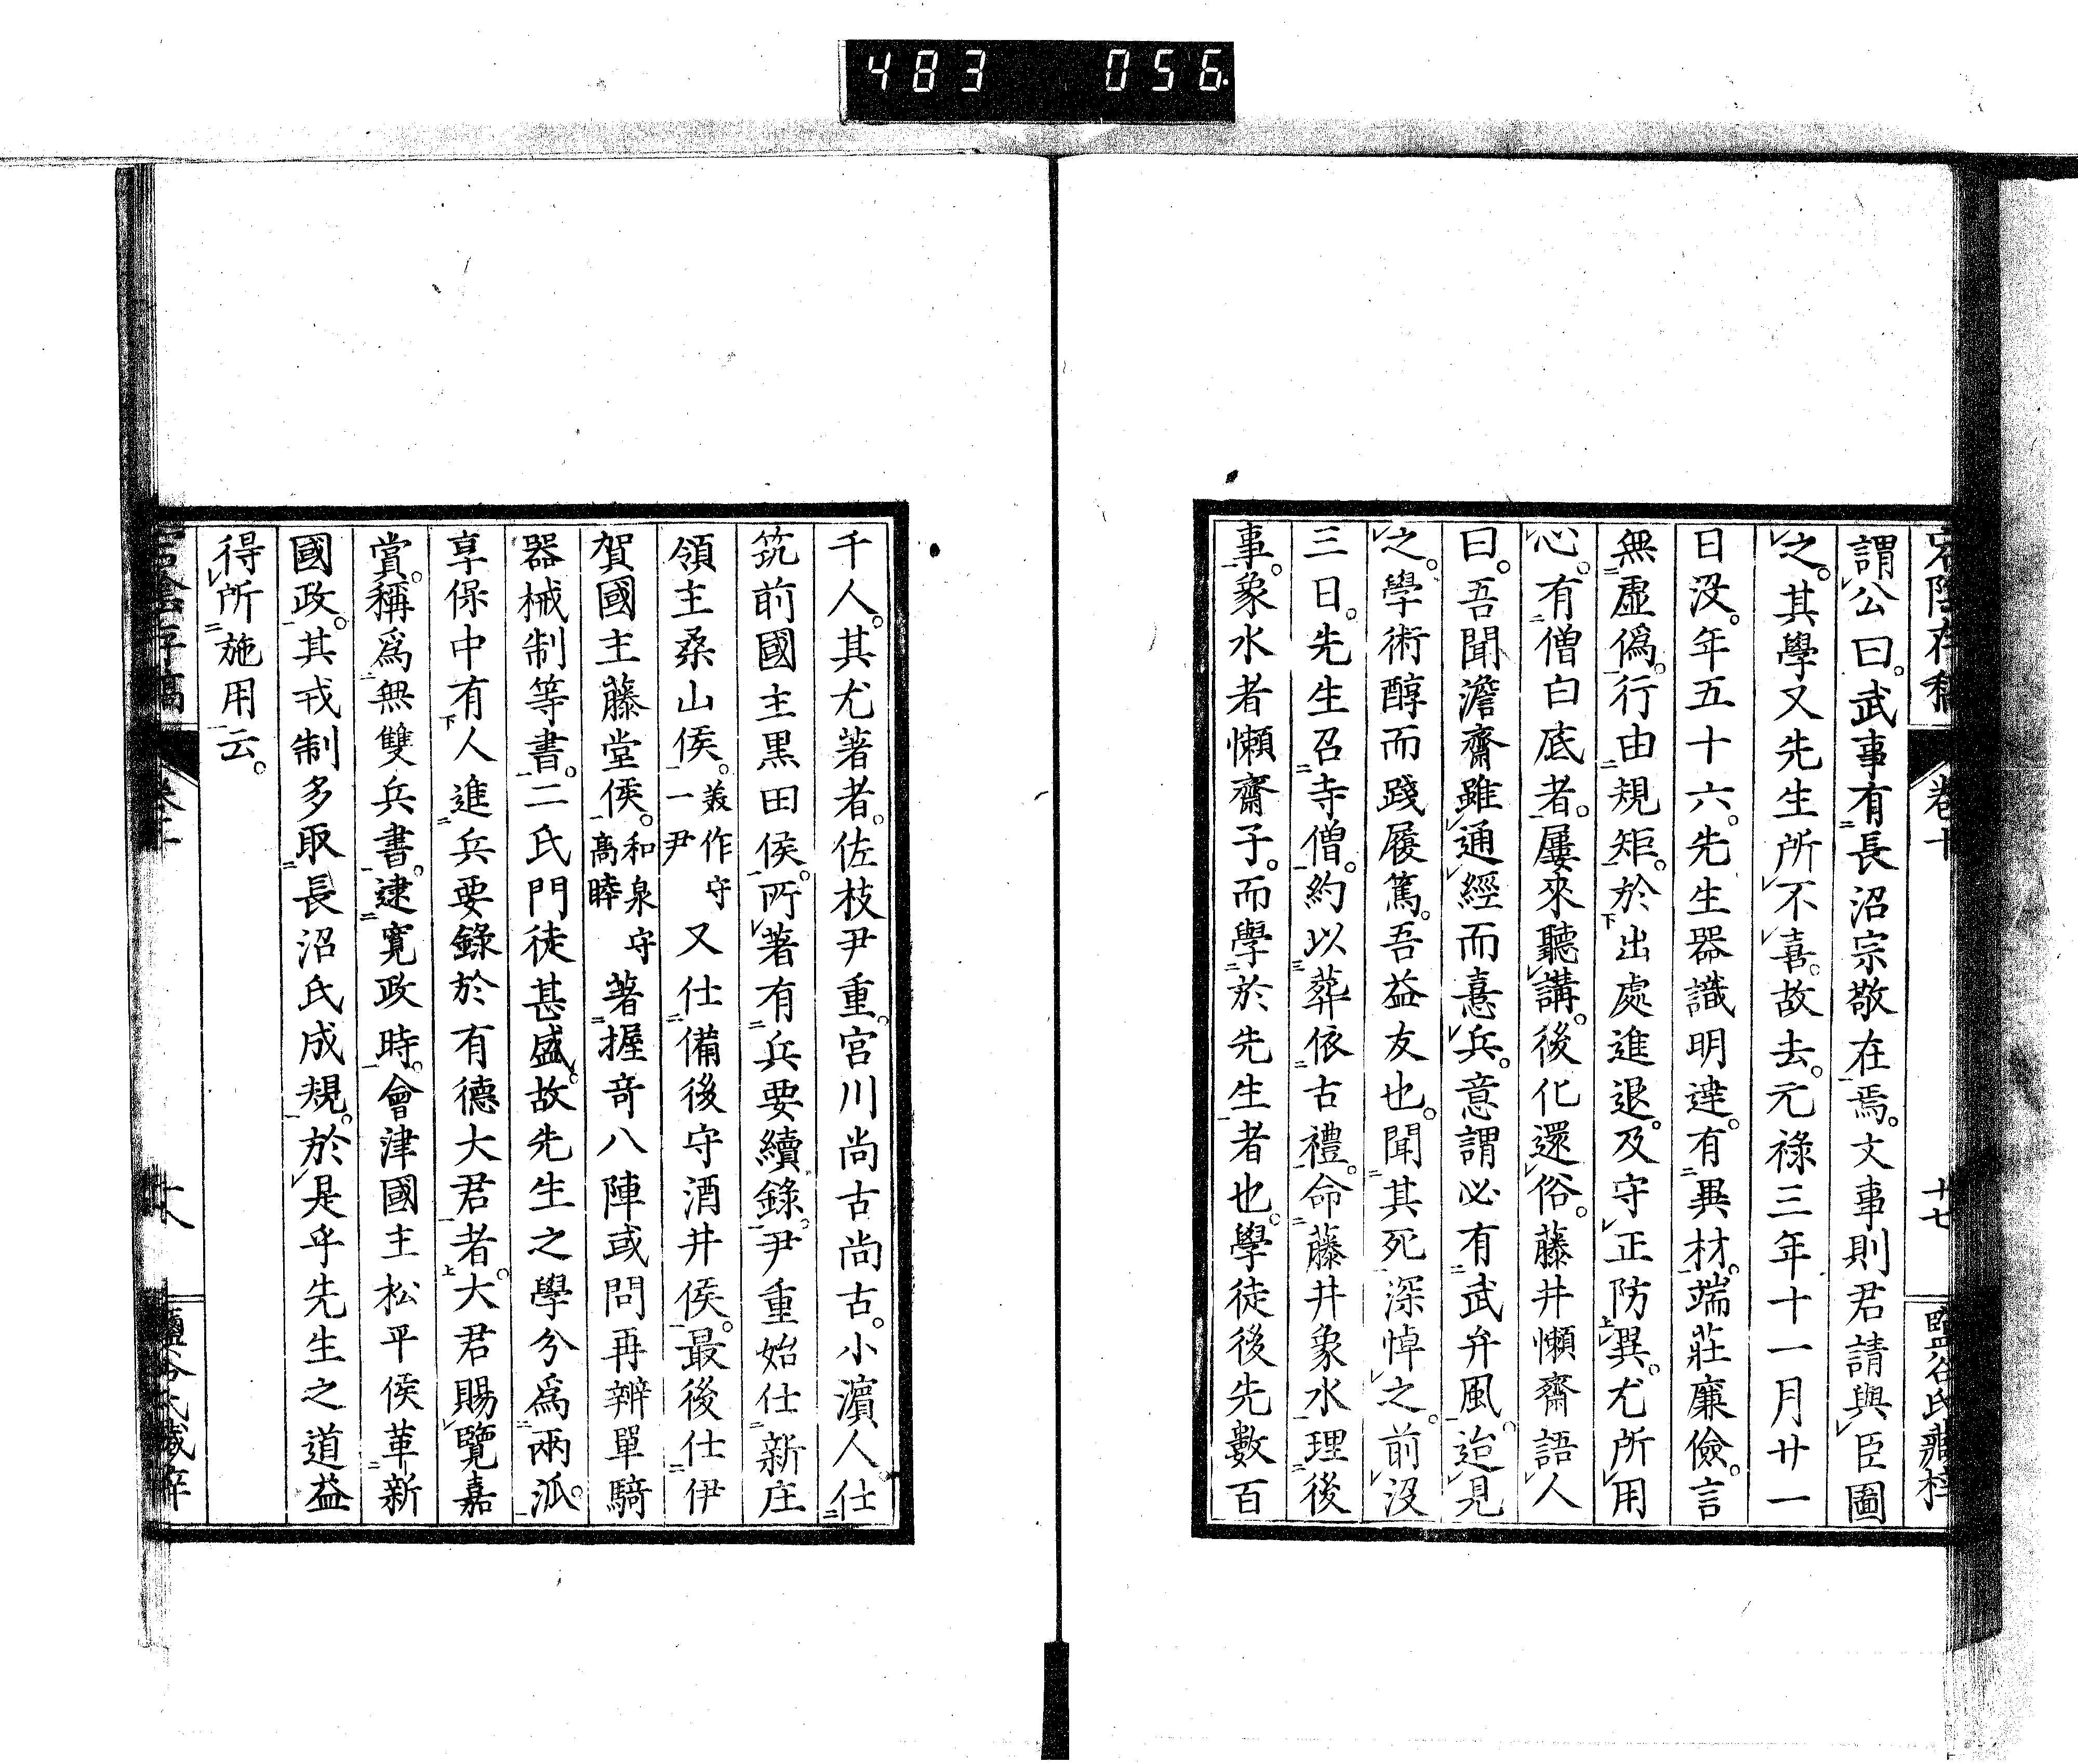 483 056
宕陰存稿 卷十 十七 鹽谷氏藏梓
謂公曰。武事有長沼宗敬在焉。文事則君請與臣圖
之。其學又先生所不喜。故去。元祿三年十一月廿一
日没。年五十六。先生器識明達。有異材。端莊廉儉。言
無虛僞。行由規矩。於出處進退。及守正防異。尤所用
心。有僧白底者。屢來聽講。後化還俗。藤井懶齋語人
曰。吾聞澹齋雖通經而憙兵。意謂必有武弁風。迨見
之。學術醇而踐履篤。吾益友也。聞其死深悼之。前没
三日。先生召寺僧。約以葬依古禮。命藤井象水理後
事。象水者懶齋子。而學於先生者也。學徒後先數百
千人。其尤著者。佐枝尹重。宮川尚古尚古。小濵人仕
筑前國主黑田侯。所著有兵要續錄。尹重始仕新庄
領主桑山侯。美作守一尹又仕備後守酒井侯。最後仕伊
賀國主藤堂侯。和泉守高睦著握奇八陣或問再辨單騎
器械制等書。二氏門徒甚盛。故先生之學分爲兩派。
享保中有人進兵要錄於有德大君者。大君賜覽嘉
賞。稱爲無雙兵書。逮寛政時。會津國主松平侯革新
國政。其戎制多取長沼氏成規。於是乎先生之道益
得所施用云。